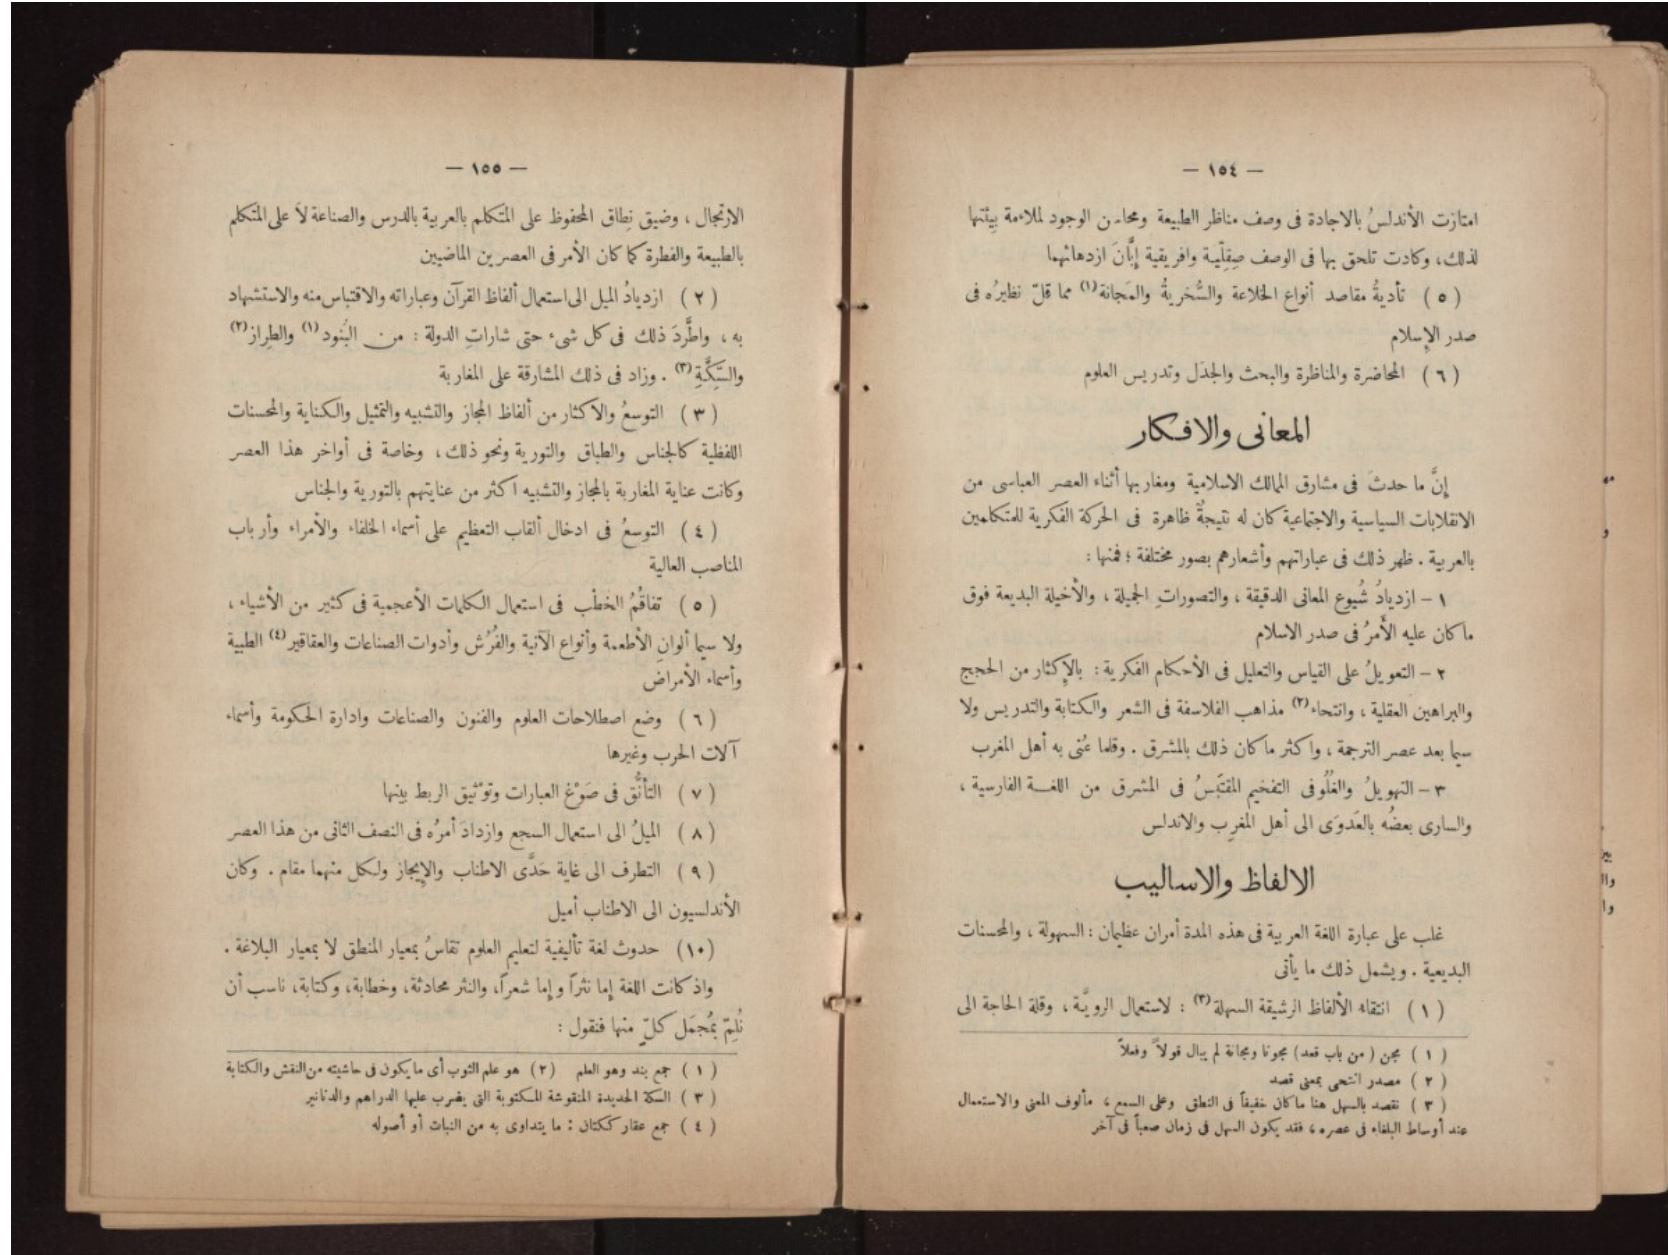 — ١٥٤ —
امتازت الأندلسُ بالاجادة فى وصف مناظر الطبيعة ومحاسن الوجود لملاءمة بيئتها
لذلك، وكادت تلحق بها فى الوصف صِقِلِّيـة وافريقية إبَّانَ ازدهائهما
( ٥ ) تأديةُ مقاصد أنواع الخلاعة والسُّخريةُ والمَجانة (١) مما قلّ نظيرُه فى
صدر الإسلام
( ٦ ) المحاضرة والمناظرة والبحث والجدَل وتدريس العلوم
المعانى والافـكار
إنَّ ما حدثَ فى مشارق الممالك الاسلامية ومغاربها أثناء العصر العباسى من
الانقلابات السياسية والاجتماعية كان له نتيجةٌ ظاهرة فى الحركة الفكرية للمتكلمين
بالعربية . ظهر ذلك فى عباراتهم وأشعارهم بصور مختلفة ؛ فمنها :
١ – ازديادُ شُيوع المعانى الدقيقة ، والتصوراتِ الجميلة ، والأخيلة البديعة فوق
ما كان عليه الأَمرُ فى صدر الاسلام
٢ – التعويلُ على القياس والتعليل فى الأحكام الفكرية : بالإكثار من الحجج
والبراهين العقلية ، وانتحاء (٢) مذاهب الفلاسفة فى الشعر والكتابة والتدريس ولا
سيما بعد عصر الترجمة ، واكثر ما كان ذلك بالمشرق . وقلما عُنى به أهل المغرب
٣ – التهويلُ والغُلُو فى التفخيم المقتَبَسُ فى المشرق من اللغـة الفارسية ،
والسارى بعضُه بالعَدوَى الى أهل المغرِب والاندلس
الالفاظ والاساليب
غلب على عبارة اللغة العربية فى هذه المدة أمران عظيمان : السهولة ، والمحسنات
البديعية . ويشمل ذلك ما يأتى
( ١ ) انتقاء الألفاظ الرشيقة السهلة (٣) : لاستعمال الرويَّـة ، وقلة الحاجة الى
( ١ ) مجن ( من باب قعد ) مجونا ومجانة لم يبال قولاً وفعلاً
( ٢ ) مصدر انتحى بمعنى قصد
( ٣ ) نقصد بالسهل هنا ما كان خفيفاً فى النطق وعلى السمع ، مألوف المعنى والاستعمال
عند أوساط البلغاء فى عصره ، فقد يكون السهل فى زمان صعباً فى آخر
— ١٥٥ —
الارتجال ، وضيق نِطاق المحفوظ على المتكلم بالعربية بالدرس والصناعة لاَ على المتكلم
بالطبيعة والفطرة كما كان الأمر فى العصرين الماضيين
( ٢ ) ازديادُ الميل الى استعمال ألفاظ القرآن وعباراته والاقتباس منه والاستشهاد
به ، واطَّردَ ذلك فى كل شىء حتى شاراتِ الدولة : من البُنود (١) والطِراز (٢)
والسِّكَّةِ (٣) . وزاد فى ذلك المشارقة على المغاربة
( ٣ ) التوسعُ والاكثار من ألفاظ المجاز والتشبيه والتمثيل والكناية والمحسنات
اللفظية كالجناس والطباق والتورية ونحو ذلك ، وخاصة فى أواخر هذا العصر
وكانت عناية المغاربة بالمجاز والتشبيه اكثر من عنايتهم بالتورية والجناس
( ٤ ) التوسعُ فى ادخال ألقاب التعظيم على أسماء الخلفاء والأمراء وأرباب
المناصب العالية
( ٥ ) تفاقُمُ الخطْب فى استعمال الكلمات الأعجمية فى كثير من الأشياء ،
ولا سيما ألوانِ الأطعمة وأنواع الآنية والفُرُش وأدوات الصناعات والعقاقير (٤) الطبية
وأسماء الأمراض
( ٦ ) وضع اصطلاحات العلوم والفنون والصناعات وادارة الحكومة وأسماء
آلات الحرب وغيرها
( ٧ ) التأنُّق فى صَوْغ العبارات وتوْثيق الربط بينها
( ٨ ) الميلُ الى استعمال السجع وازدادَ أمرُه فى النصف الثانى من هذا العصر
( ٩ ) التطرف الى غاية حَدَّى الاطناب والإيجاز ولكل منهما مقام . وكان
الأندلسيون الى الاطناب أميل
(١٠) حدوث لغة تأليفية لتعليم العلوم تقاسُ بمعيار المنطق لا بمعيار البلاغة .
واذ كانت اللغة إما نثراً وإما شعراً، والنثر محادثة، وخطابة، وكتابة، ناسب أن
نُلِمّ بمُجمَل كلّ منها فنقول :
( ١ ) جمع بند وهو العلم ( ٢ ) هو علم الثوب أى ما يكون فى حاشيته من النقش والكتابة
( ٣ ) السكة الحديدة المنقوشة المكتوبة التى يضرب عليها الدراهم والدنانير
( ٤ ) جمع عقار ككتان : ما يتداوى به من النبات أو أصوله